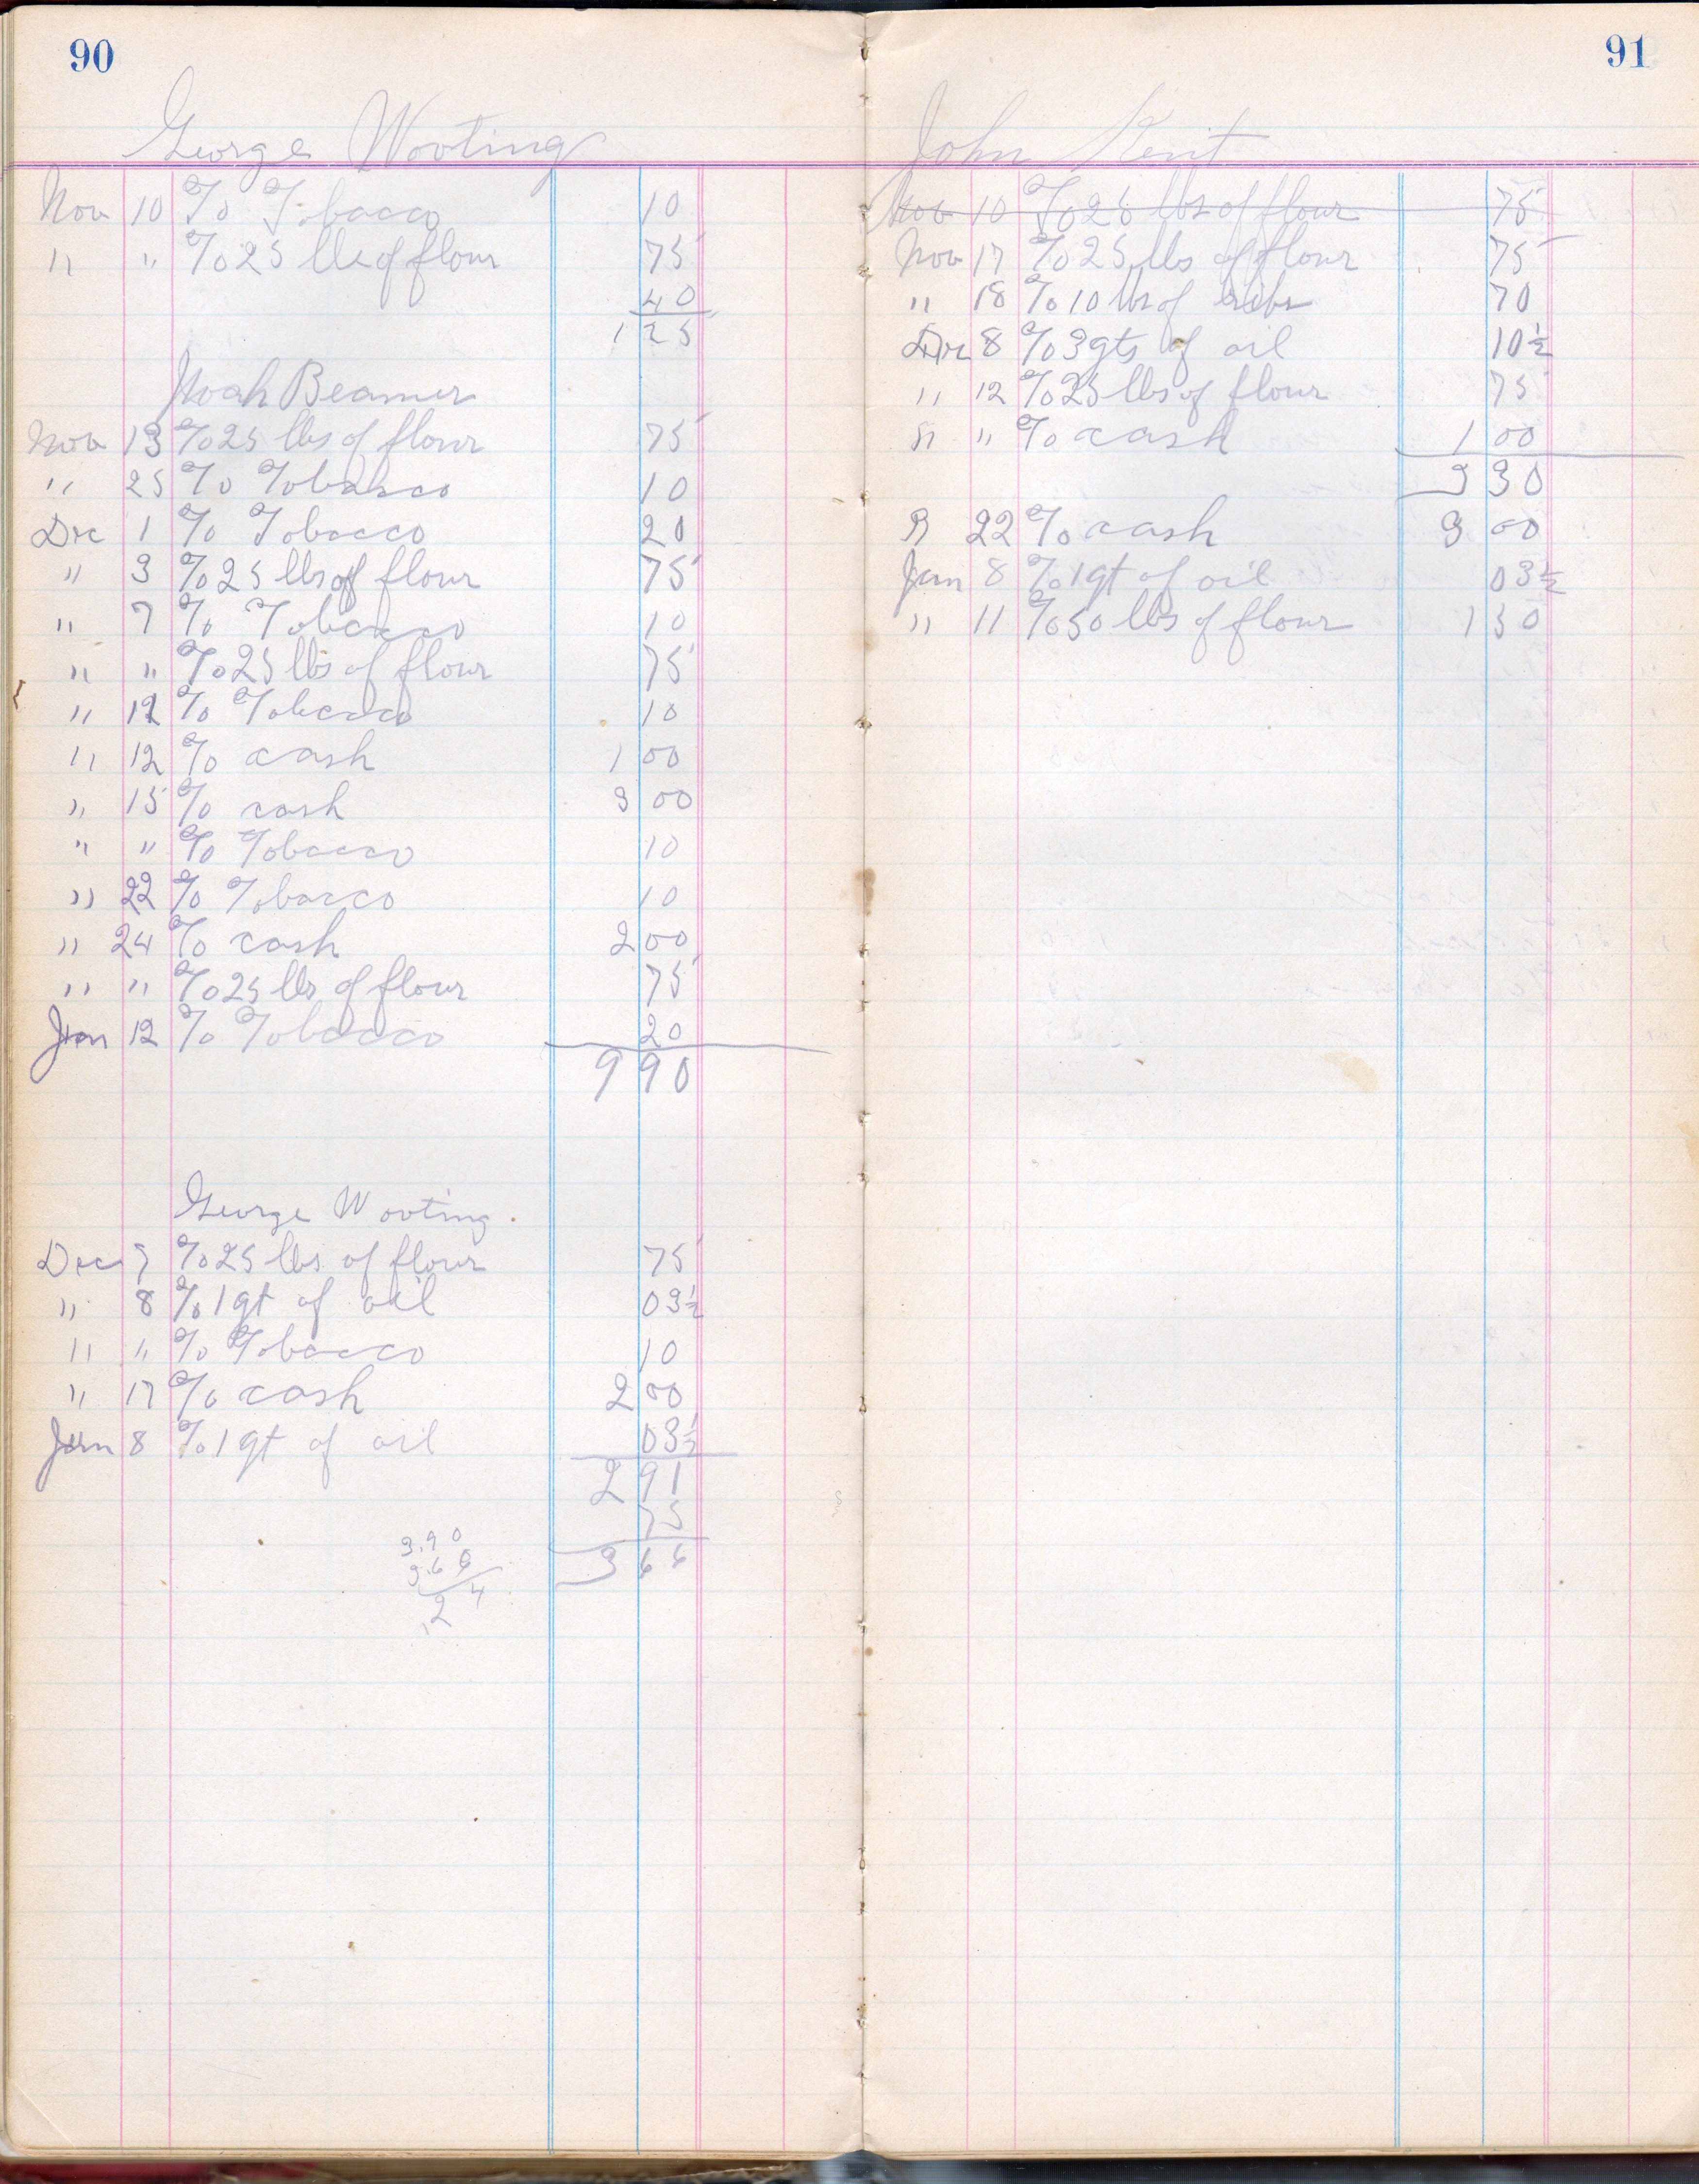 90
George Wooting
Nov 10 To Tobacco 10
" " To 25 lbs of flour 75
40
1 25
Noah Beamer
Nov 13 To 25 lbs of flour 75
" 25 To Tobacco 10
Dec 1 To Tobacco 20
" 3 To 25 lbs of flour 75
" 7 To Tobacco 10
" " To 25 lbs of flour 75
" 12 To Tobacco 10
" 12 To cash 1 00
" 15 To cash 3 00
" " To Tobacco 10
" 22 To Tobacco 10
" 24 To cash 2 00
" " To 25 lbs of flour 75
Jan 12 To Tobacco 20
9 90
George Wooting
Dec 7 To 25 lbs of flour 75
" 8 To 1 qt of oil 03½
" " To Tobacco 10
" 17 To cash 2 00
Jan 8 To 1 qt of oil 03½
2 91
75
3 66
3.90
3.66
.24
91
John Kent
Nov 10 To 25 lbs of flour 75
Nov 17 To 25 lbs of flour 75
" 18 To 10 lbs of ribs 70
Dec 8 To 3 qts of oil 10½
" 12 To 25 lbs of flour 75
" " To cash 1 00
3 30
22 To cash 3 00
Jan 8 To 1 qt of oil 03½
" 11 To 50 lbs of flour 1 50